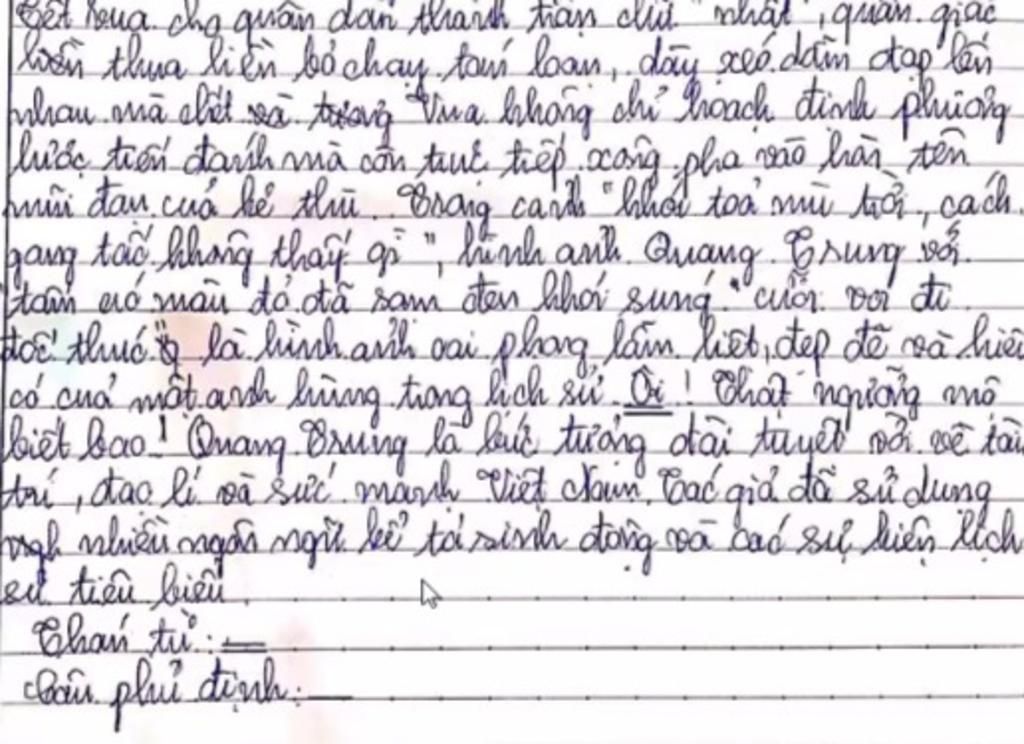 Tết vua cho quân dàn thành trận chữ "nhất", quân giặc
liền thua liền bỏ chạy tán loạn, dày xéo dẫm đạp lên
nhau mà chết và tướng Vua không chỉ hoạch định phương
lược tiến đánh mà còn trực tiếp xông pha vào hàn tên
mũi đạn của kẻ thù. Trong cảnh "khói toả mù trời, cách
gang tấc không thấy gì", hình ảnh Quang Trung với
tấm áo màu đỏ đã sạm đen khói súng "cưỡi voi đi
đốc thúc" là hình ảnh oai phong lẫm liệt, đẹp đẽ và hiếm
có của một anh hùng trong lịch sử. Ôi! Thật ngưỡng mộ
biết bao! Quang Trung là bức tượng đài tuyệt vời về tài
trí, đạo lí và sức mạnh Việt Nam. Tác giả đã sử dụng
nhiều ngôn ngữ kể tả sinh động và các sự kiện lịch
sử tiêu biểu.
Thán từ:
Câu phủ định: